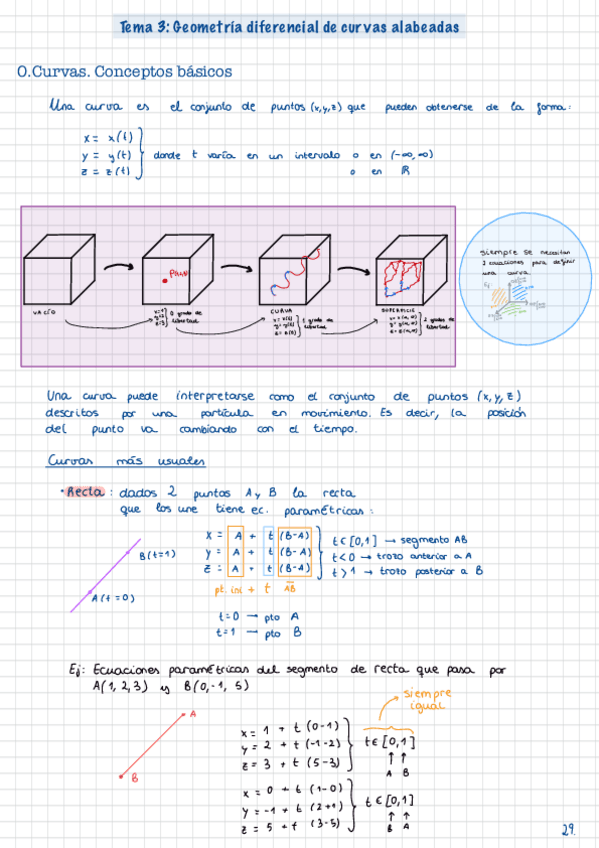 Tema 3: Geometría diferencial de curvas alabeadas
0.Curvas. Conceptos básicos
Una curva es el conjunto de puntos (x,y,z) que pueden obtenerse de la forma:
x = x(t)
y = y(t) donde t varía en un intervalo o en (-∞,∞)
z = z(t) o en ℝ
VACÍO
0 grado de libertad
CURVA
x = x(t)
y = y(t)
z = z(t)
1 grado de libertad
SUPERFICIE
2 grados de libertad
siempre se necesitan
2 ecuaciones para definir
una curva
Ej.
Una curva puede interpretarse como el conjunto de puntos (x,y,z)
descritos por una partícula en movimiento. Es decir, la posición
del punto va cambiando con el tiempo.
Curvas más usuales
· Recta: dados 2 puntos A y B la recta
que los une tiene ec. paramétricas:
x = A + t (B-A)
y = A + t (B-A)
z = A + t (B-A)
t∈[0,1] → segmento AB
t<0 → trozo anterior a A
t>1 → trozo posterior a B
B(t=1)
A(t=0)
pt. ini + t AB
t=0 → pto A
t=1 → pto B
Ej: Ecuaciones paramétricas del segmento de recta que pasa por
A(1,2,3) y B(0,-1,5)
siempre
igual
A
B
x = 1 + t (0-1)
y = 2 + t (-1-2)
z = 3 + t (5-3)
t∈[0,1]
A B
x = 0 + t (1-0)
y = -1 + t (2+1)
z = 5 + t (3-5)
t∈[0,1]
B A
29.